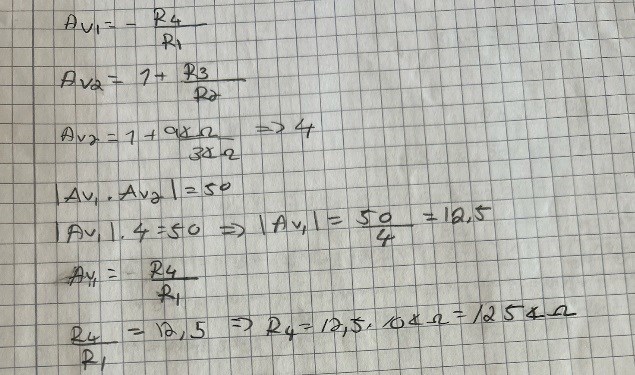 Av1 = - R4/R1
Av2 = 1 + R3/R2
Av2 = 1 + 9kΩ/3kΩ => 4
|Av1 . Av2| = 50
|Av1| . 4 = 50 => |Av1| = 50/4 = 12,5
Av1 = R4/R1
R4/R1 = 12,5 => R4 = 12,5 . 10kΩ = 125kΩ